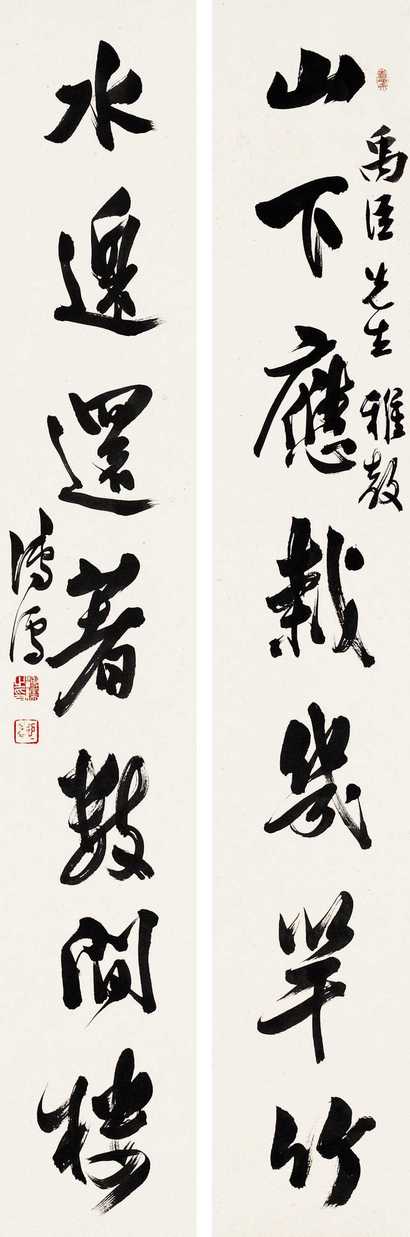 禹臣先生雅教
山下應栽幾竿竹
水邊還著數間樓
溥儒